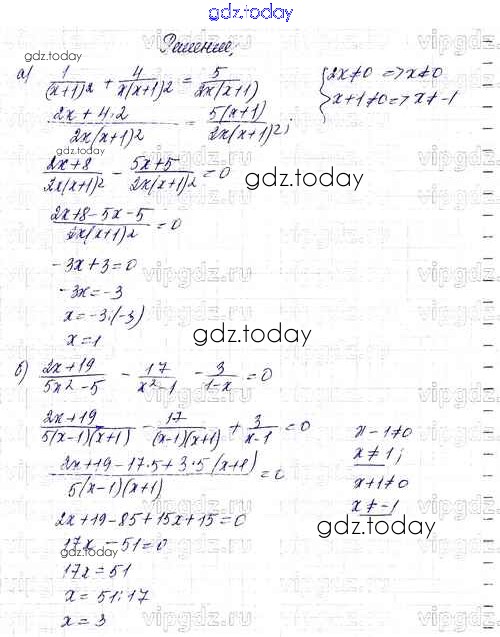 gdz.today
Решение,
gdz.today
а) 1/(x+1)² + 4/x(x+1)² = 5/2x(x+1)
{2x≠0 => x≠0
x+1≠0 => x≠-1
(2x+4·2)/2x(x+1)² = 5(x+1)/2x(x+1)²;
(2x+8)/2x(x+1)² - (5x+5)/2x(x+1)² = 0
gdz.today
(2x+8-5x-5)/2x(x+1)² = 0
-3x+3=0
vipgdz.ru
-3x=-3
x=-3:(-3)
gdz.today
x=1
б) (2x+19)/(5x²-5) - 17/(x²-1) - 3/(1-x) = 0
(2x+19)/5(x-1)(x+1) - 17/(x-1)(x+1) + 3/(x-1) = 0
x-1≠0
x≠1;
(2x+19-17·5+3·5(x+1))/5(x-1)(x+1) = 0
x+1≠0
x≠-1
2x+19-85+15x+15=0
gdz.today
17x-51=0
gdz.today
17x=51
x=51:17
x=3
vipgdz.ru